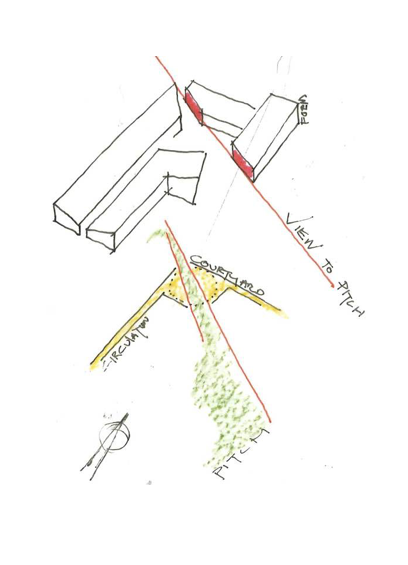 FORMS
VIEW TO PITCH
COURTYARD
CIRCULATON
PITCH